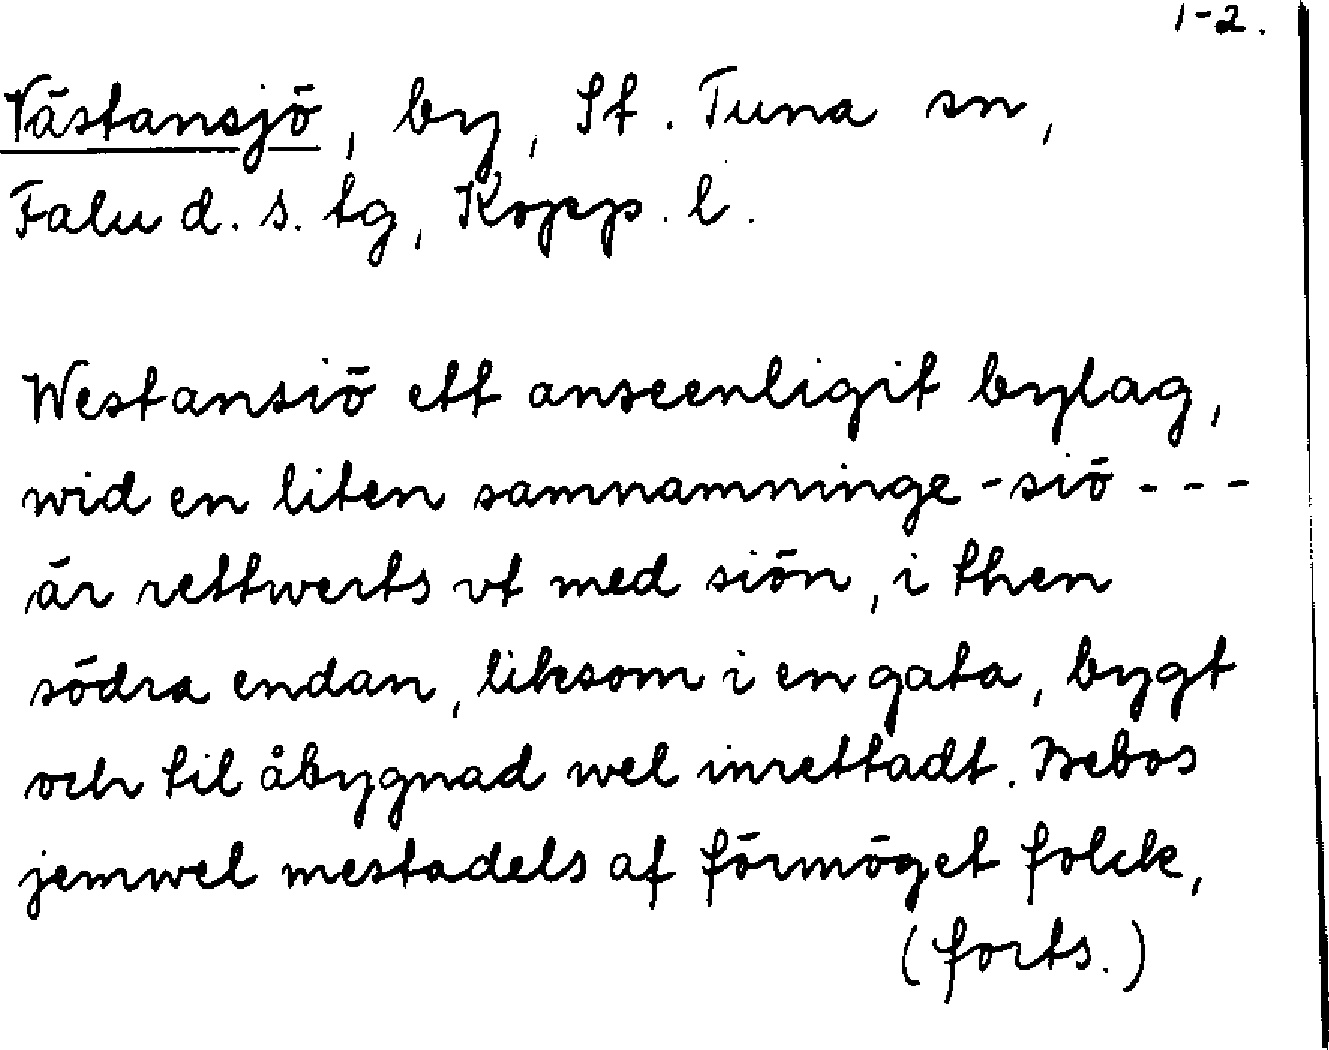 1-2.
Västansjö, by, St. Tuna sn,
Falu d. s. tg, Kopp. l.
Westansiö ett anseenligit bylag,
wid en liten samnamninge-siö - - -
är rettwerts vt med siön, i then
södra endan, liksom i en gata, bygt
och til åbygnad wel inrettadt. Bebos
jemwel mestadels af förmöget folck,
(forts.)